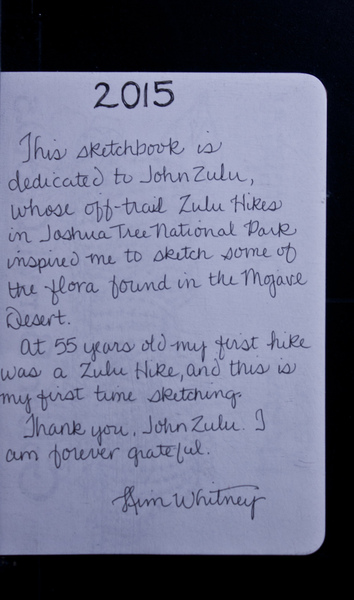 2015
This sketchbook is
dedicated to John Zulu,
whose off-trail Zulu Hikes
in Joshua Tree National Park
inspired me to sketch some of
the flora found in the Mojave
Desert.
At 55 years old my first hike
was a Zulu Hike, and this is
my first time sketching.
Thank you, John Zulu. I
am forever grateful.
Kim Whitney